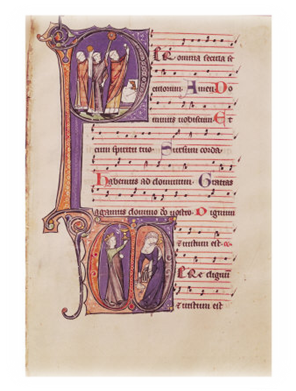 ER omnia secula se
culorum. Amen Do
minus uobiscum Et
cum spiritu tuo. Sursum corda.
Habemus ad dominum. Gratias
agamus domino nostro. Dignum
et iustum est.
ERE dignum
et iustum est